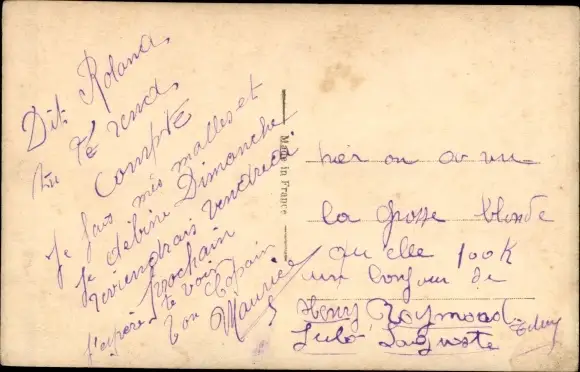 Dit Roland
tu te rend
compte
Je fais mes malles et
je débine Dimanche
reviendrais vendredi
prochain
j'espère te voir
ton Copain
Maurice
Made in France
hier on a vu
la grosse blonde
qu'elle look
un bonjour de
Henry, Raymond
Lulo